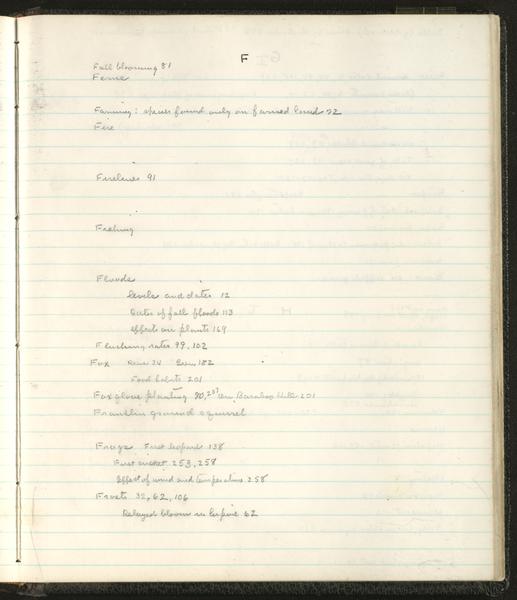 F
Fall blooming 81
Ferns
Farming: species found only on farmed land 72
Fire
Firelanes 91
Fishing
Floods
Levels and dates 12
Dates of fall floods 113
Effects on plants 169
Flushing rates 99, 102
Fox Seen 182
Food habits 201
Foxglove planting 90, 237 on Baraboo Hills 201
Franklin ground squirrel
Frogs First leopard 138
First cricket 253, 258
Effect of wind and temperature 258
Frosts 32, 62, 106
Delayed bloom in lupine 62